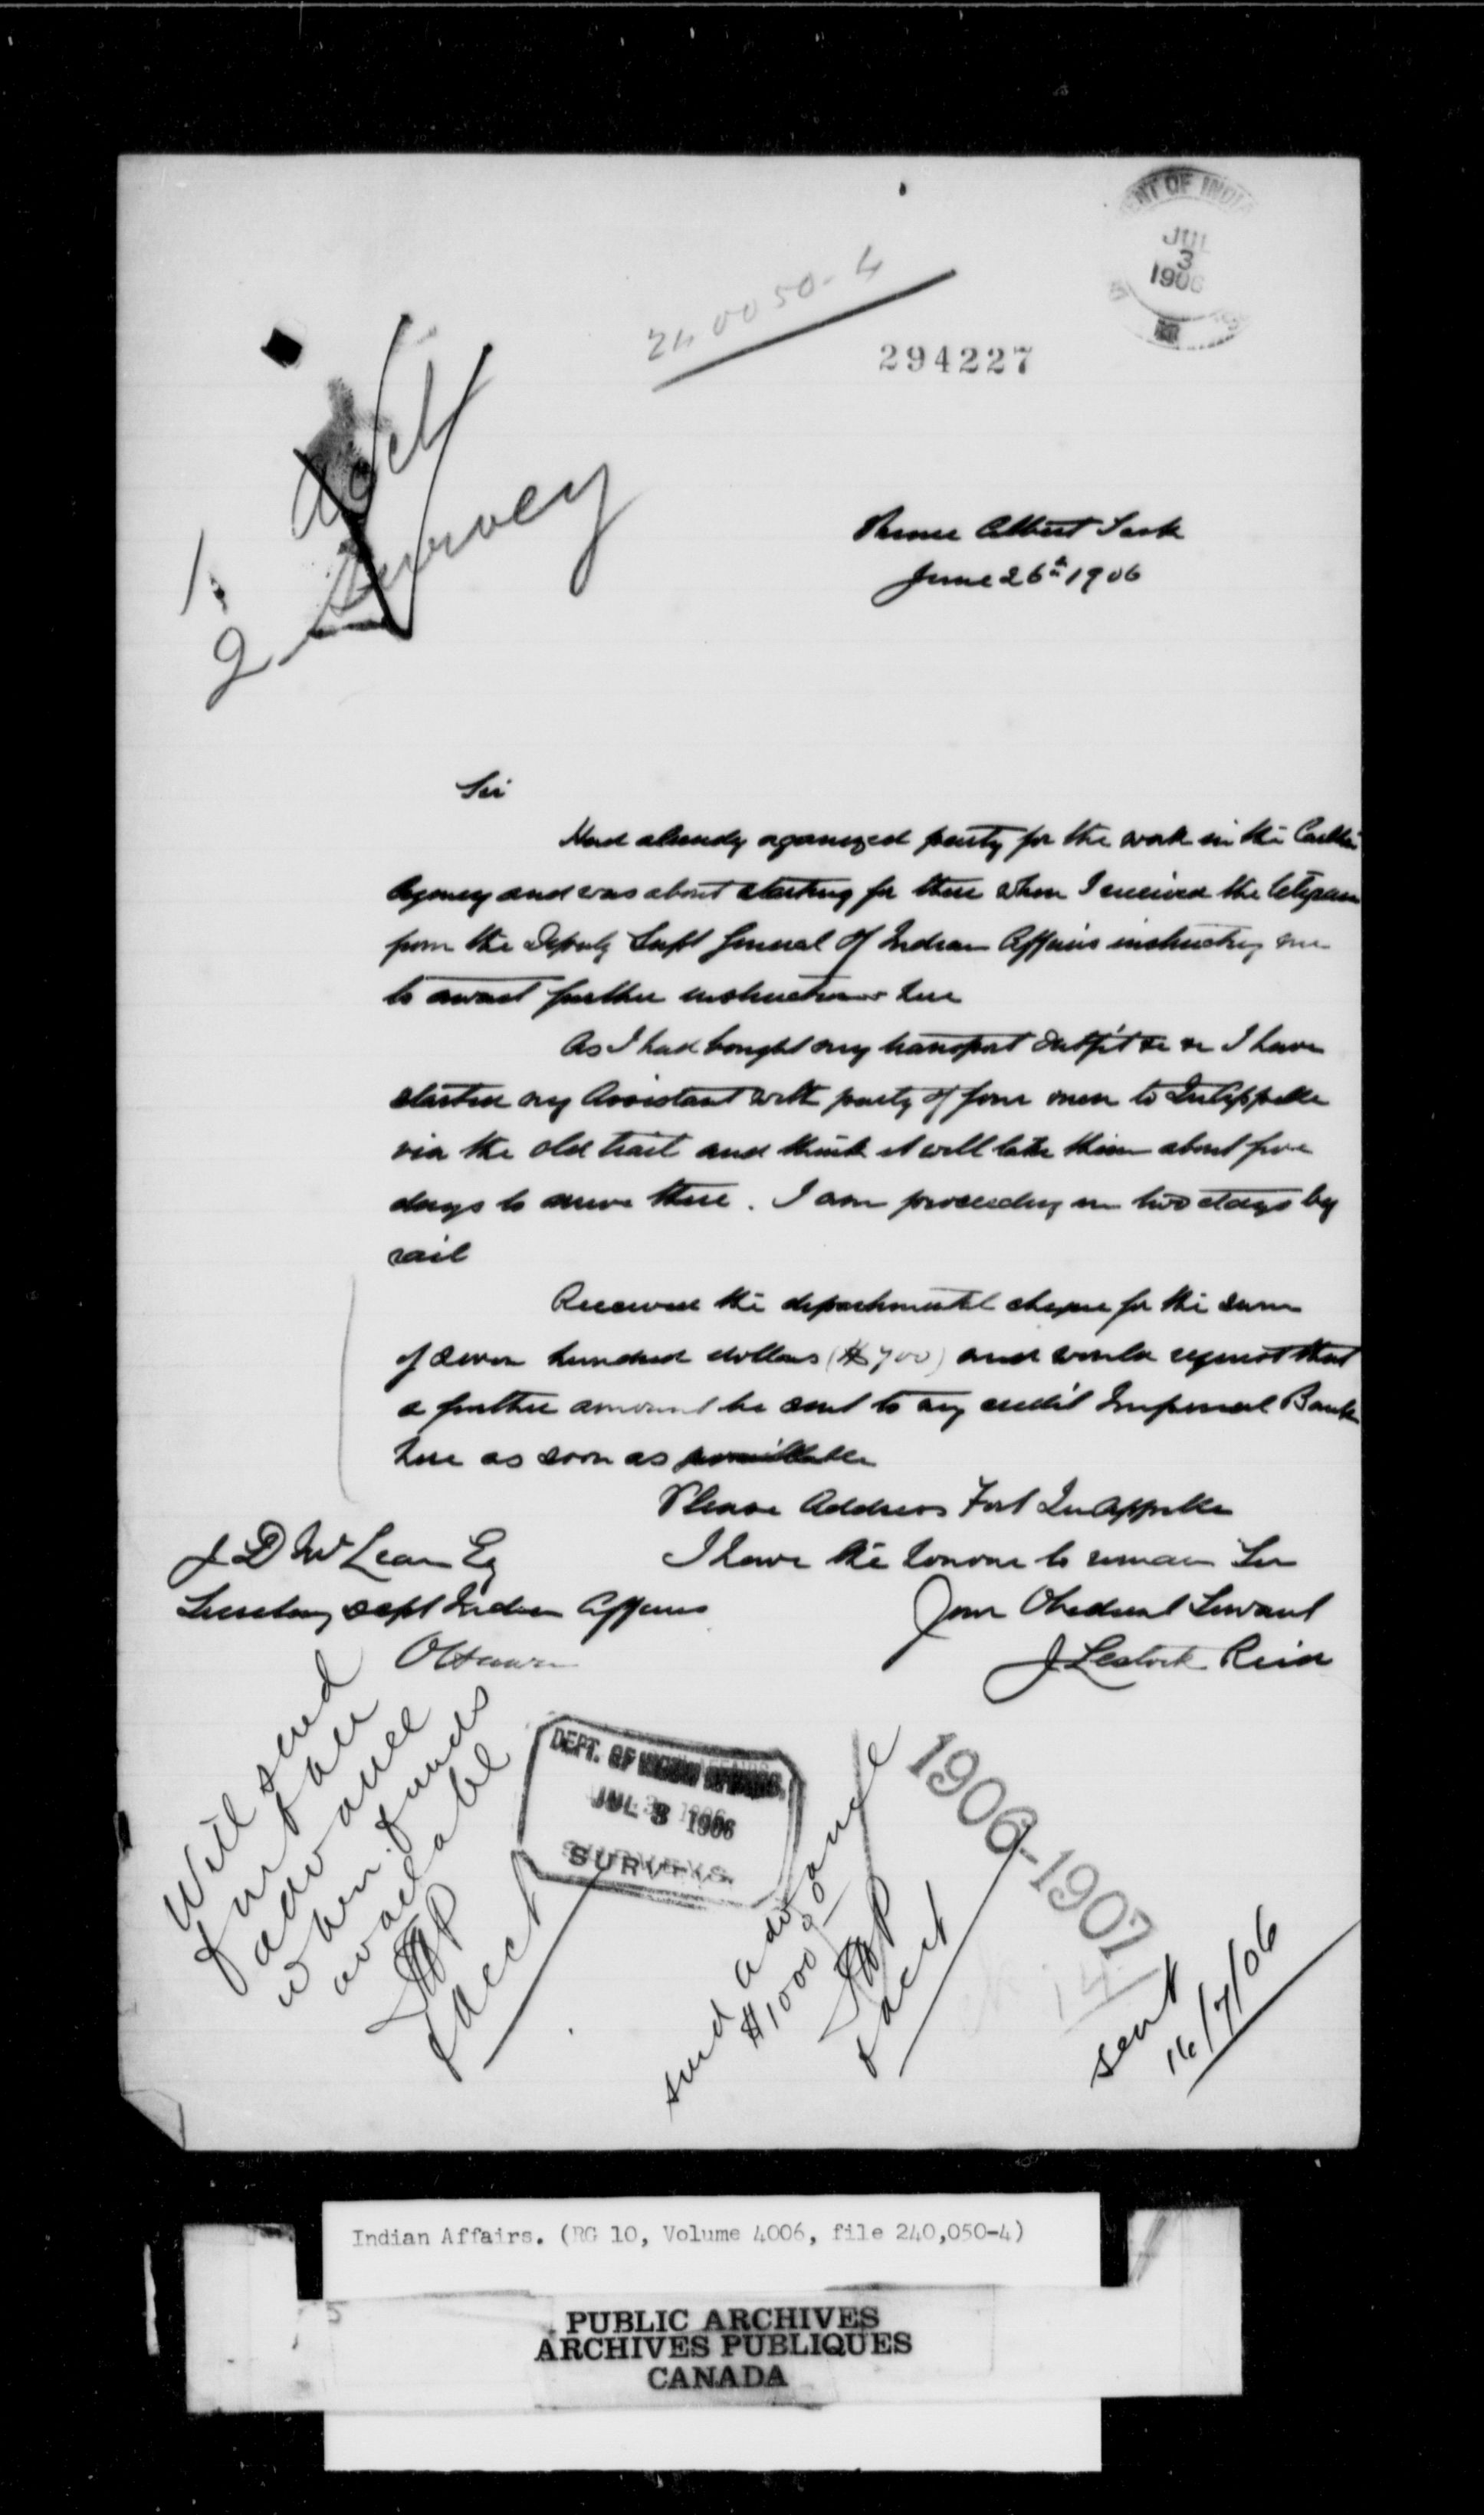 ENT OF INDIA
JUL
3
1906
240050-4
294227
1. Acct
2 Survey
Prince Albert Sask
June 26th 1906
Sir
Had already organized party for the work in the Carlton
Agency and was about starting for there when I received the telegram
from the Deputy Supt General of Indian Affairs instructing me
to await further instructions here
As I had bought my transport outfit &c &c I have
started my Assistant with party of four men to QuAppelle
via the old trail and think it will take them about five
days to arrive there. I am proceeding in two days by
rail
Received the departmental cheque for the sum
of seven hundred dollars ($700) and would request that
a further amount be sent to my credit Imperial Bank
here as soon as
Please Address Fort QuAppelle
I have the honour to remain Sir
Your Obedient Servant
J Lestock Reid
J D McLean Esq
Secretary Dept Indian Affairs
Ottawa
Will send
further
advance
when funds
available
Acct
DEPT. OF INDIAN AFFAIRS.
JUL 3 1906
SURVEYS.
send advance
$1000
Acct
1906-1907
14
sent
16/7/06
Indian Affairs. (RG 10, Volume 4006, file 240,050-4)
PUBLIC ARCHIVES
ARCHIVES PUBLIQUES
CANADA